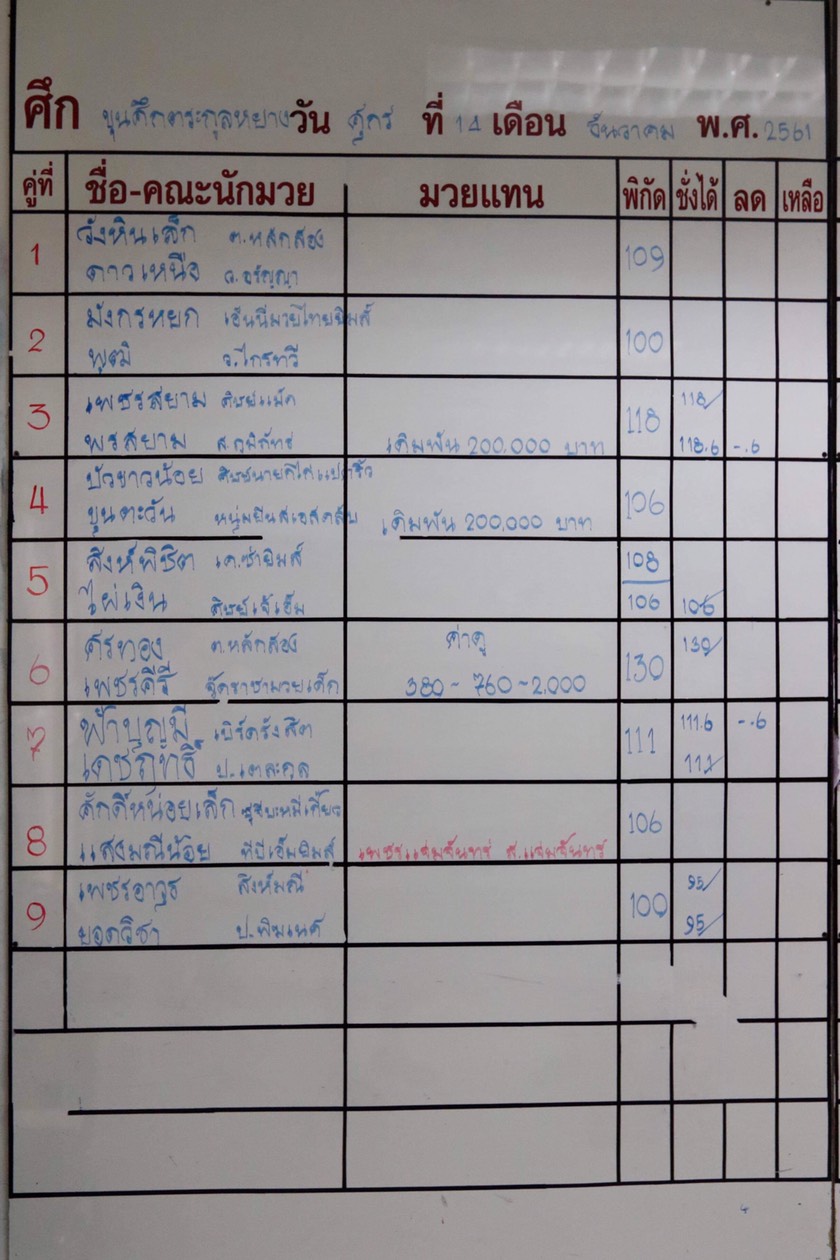 ศึก ขุนศึกตระกูลหยาง วัน ศุกร์ ที่ 14 เดือน ธันวาคม พ.ศ. 2561
คู่ที่ ชื่อ-คณะนักมวย มวยแทน พิกัด ชั่งได้ ลด เหลือ
1 วังหินเล็ก ต.หลักสอง 109
ดาวเหนือ อ.อรัญญา
2 มังกรหยก เฮ้นนี่มวยไทยยิมส์ 100
พุฒิ ว.ไกรทวี
3 เพชรสยาม ศิษย์แม็ค 118 118
พรสยาม ส.ภูมิภัทร เดิมพัน 200,000 บาท 118.6 -.6
4 บัวขาวน้อย
ขุนตะวัน เดิมพัน 200,000 บาท 106
5 สิงห์พิชิต เค.ซ่ายิมส์ 108
ไผ่เงิน ศิษย์เจ๊เอ็ม 106 106
6 ศรทอง ต.หลักสอง ค่าดู 130 130
เพชรคีรี จัดราชามวยเด็ก 380 - 760 - 2,000
7 ฟ้าบุญมี เบิร์ดรังสิต 111 111.6 -.6
เดชฤทธิ์ ป.เตละกุล 111
8 ศักดิ์หน่อยเล็ก ซุ้ยบะหมี่เกี๊ยว 106
แสงมณีน้อย ทีบีเอ็มยิมส์ เพชรแจ่มจันทร์ ส.แจ่มจันทร์
9 เพชรอาวุธ สิงห์มณี 100 95
ยอดวิชา ป.พิฆเนศ 95